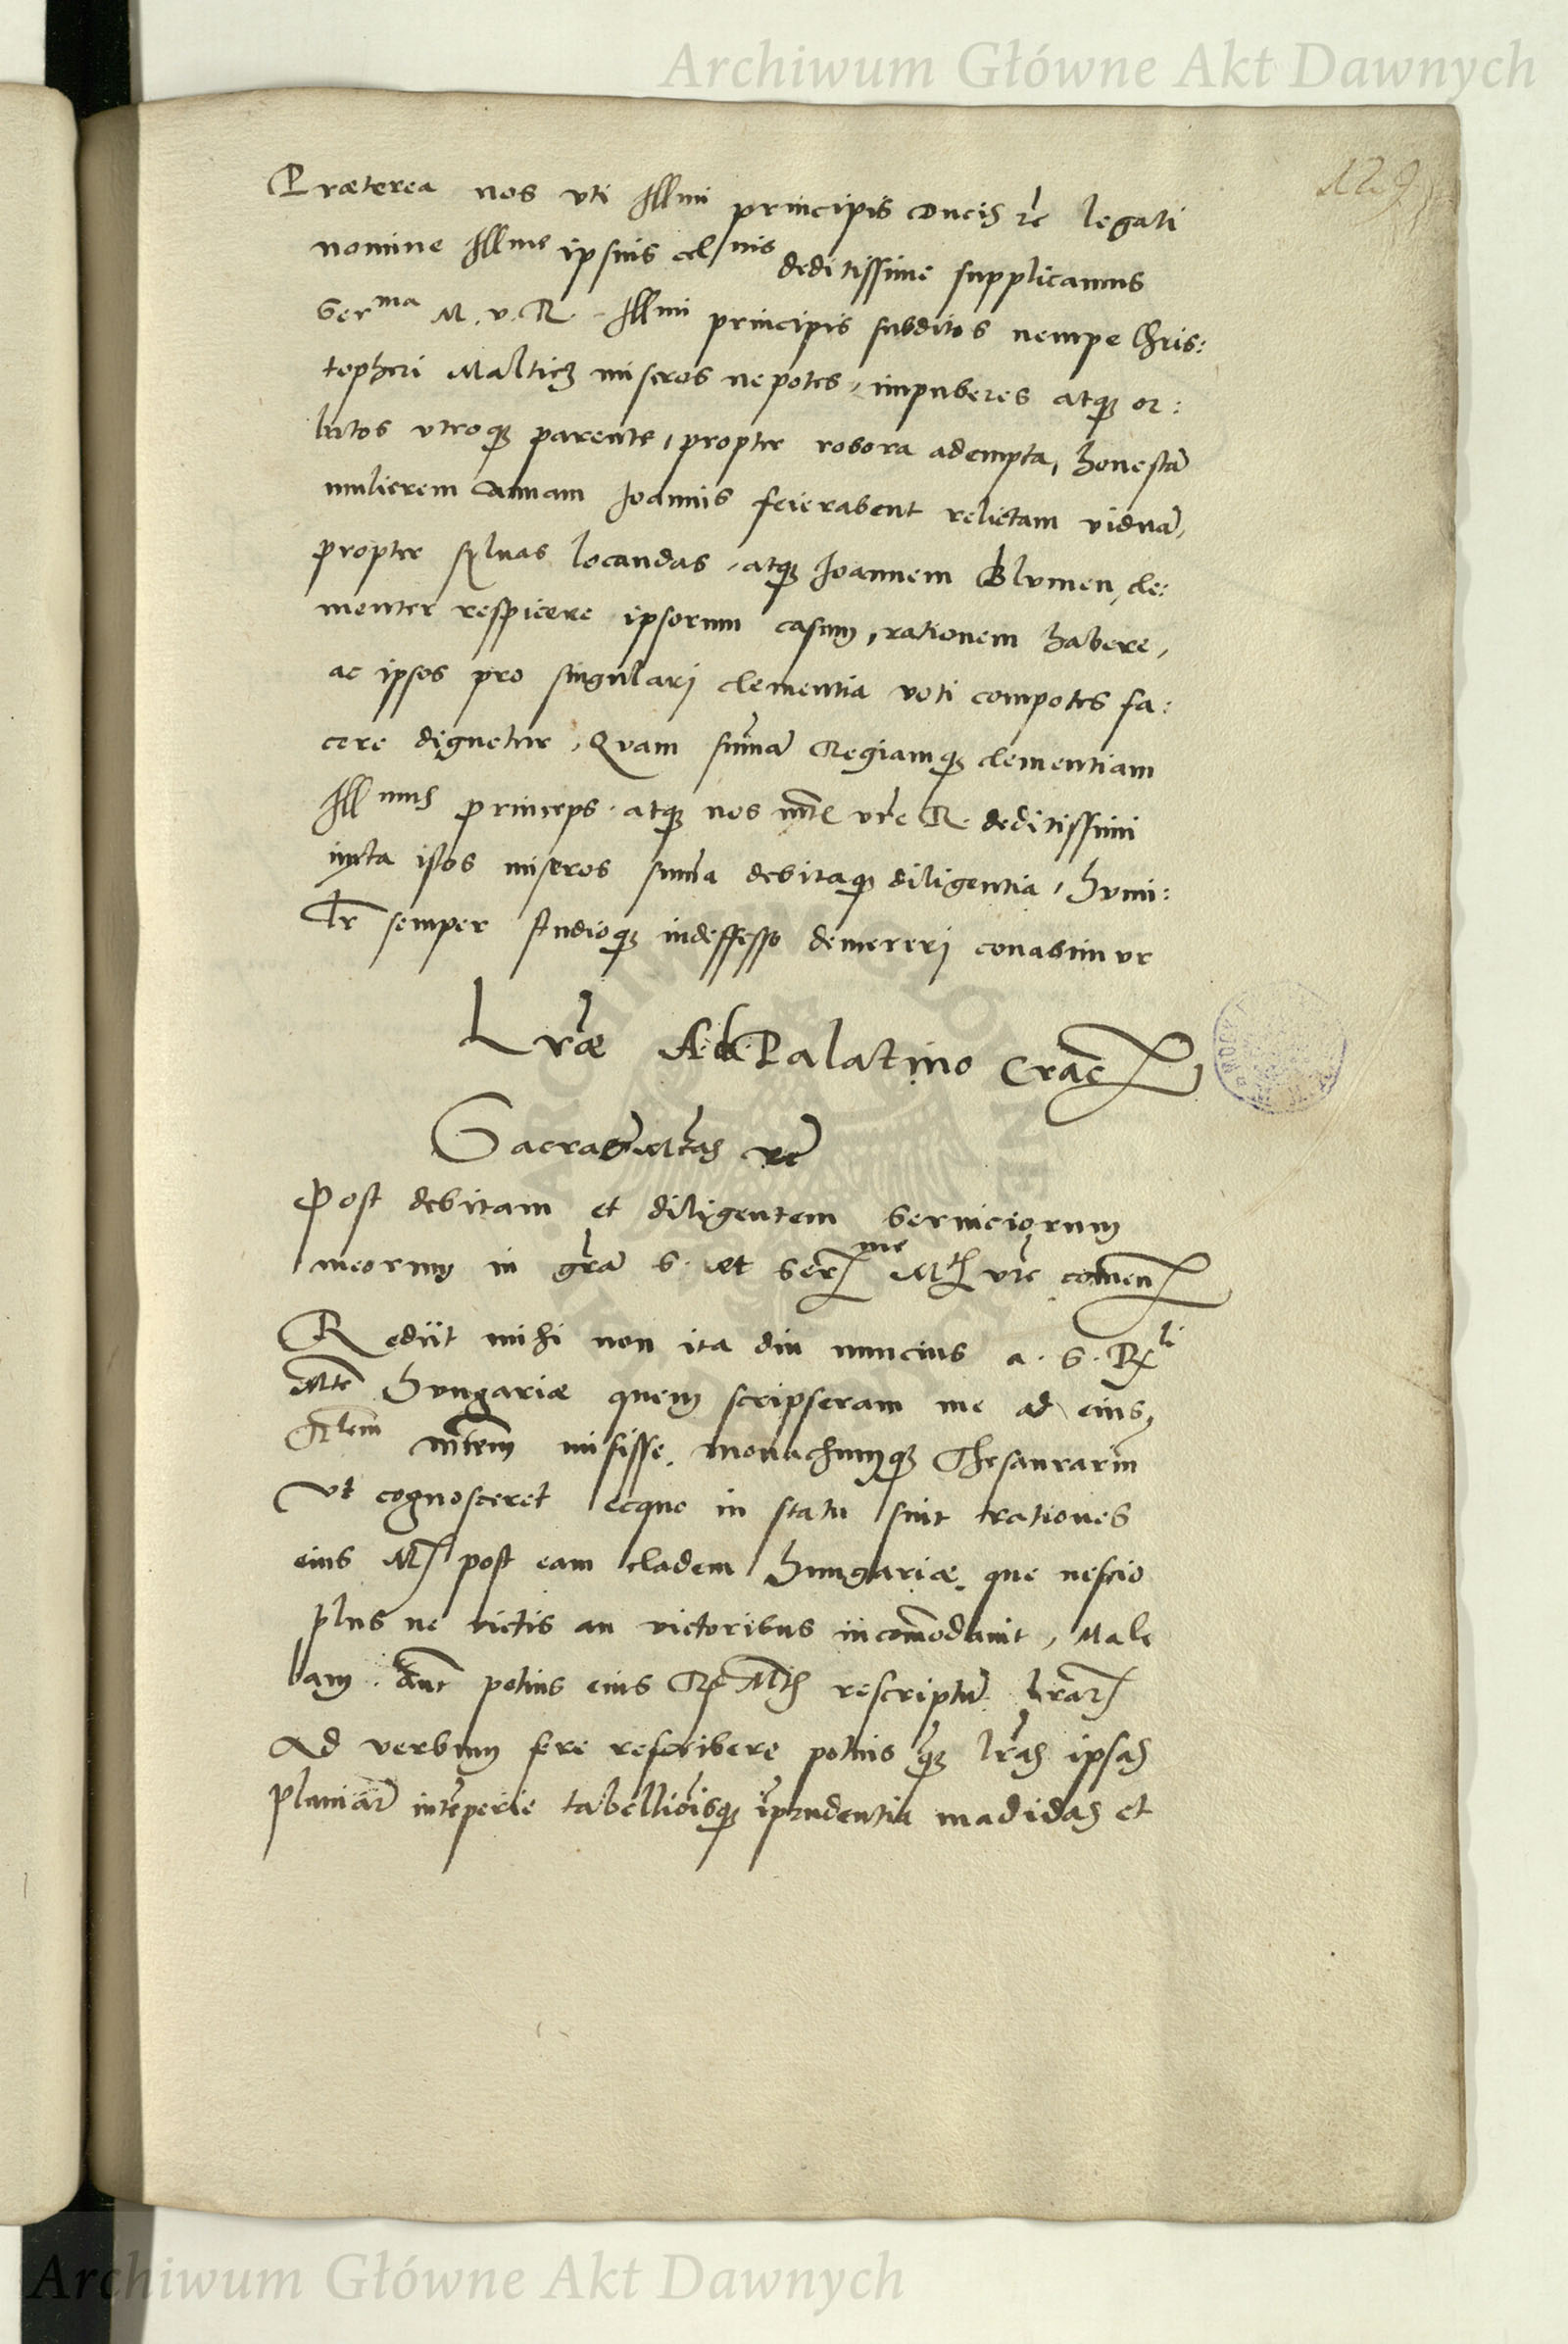 Archiwum Główne Akt Dawnych
129
Præterea nos vti Illmi principis Ducis rc legati
nomine Illme ipsius celnis deditissime supplicamus
Serma M. v. R. Illmi principis subditos nempe Chris:
topheri Malticz miseros nepotes, impuberes atq or:
batos vtroq parente, propter robora adempta, honestã
mulierem Annam Joannis feierabent relictam viduã,
propter syluas locandas, atq Joannem Blvmen, cle:
menter respicere ipsorum casum, rationem habere,
ac ipsos pro singulari clementia voti compotes fa:
cere dignetur, Quam sum̃ã Regiamq clementiam
Illmus princeps. atq nos mte vre R. deditissimi
iuxta istos miseros sum̃a debitaq diligentia, hvmi:
lr semper studioq indeffesso demereri conabimvr
Lr̃æ A. Palatino Crac
Sacra Mtas rc
Post debitam et diligentem seruiciorum
meorum in grã S. et Serme Mtis vrẽ com̃en
Rediit mihi non ita diu nuncius a. S. Rli
Mte Hvngariæ quem scripseram me ad eius,
Rlem mtem misisse, monachumq Thesaurariũ
Vt cognosceret ecquo in statu sint rationes
eius M post eam cladem Hungariæ, que nescio
plus ne victis an victoribus incom̃odauit, Male
bam aũt potius eius R Mtis rescriptũ lrãr
Ad verbum fere rescribere potuis q lrãs ipsas
pluuiar̃ intẽperie tabellioisq ĩprudentia madidas et
Archiwum Główne Akt Dawnych